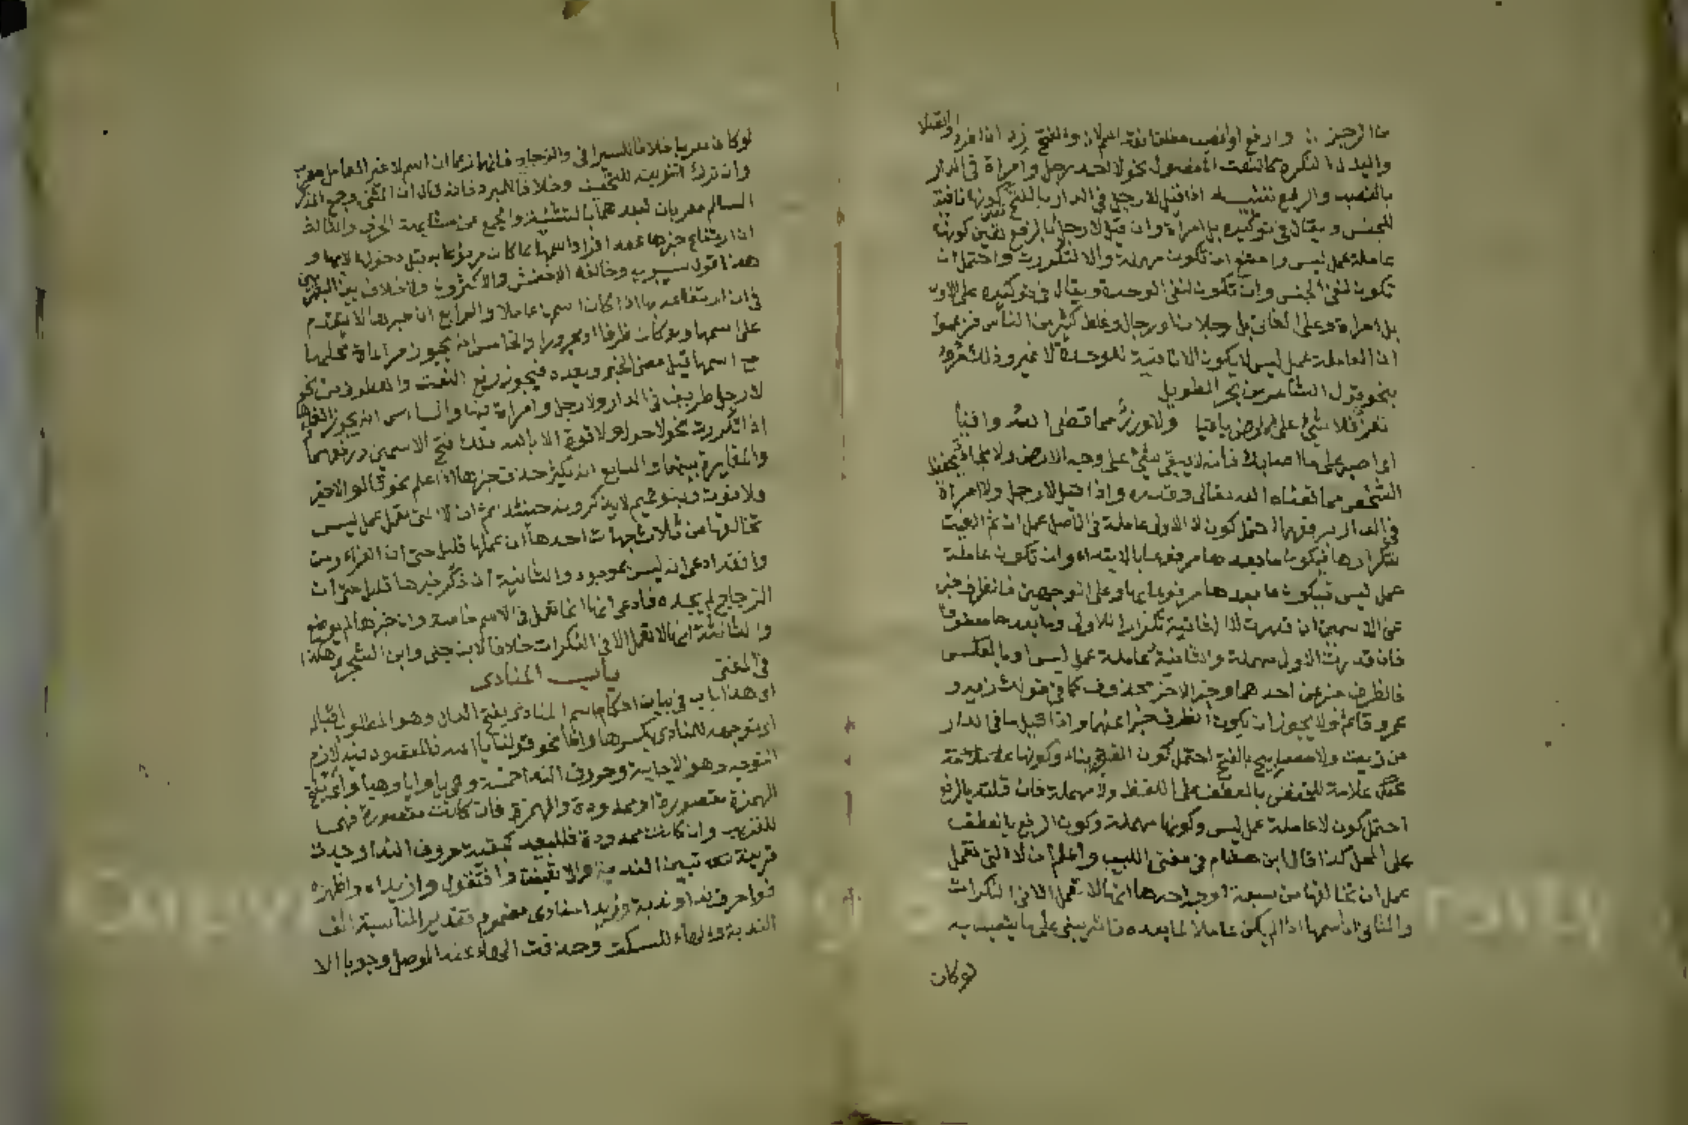 من الرجز وارفع او انصب مطلقا
والبدل ان النكرة كالنعت المفصول نحو لا احد رجل وامراة في الدار
بالنصب والرفع اذا قيل لا رجل في الدار بالفتح كونها نافية
للجنس ويقال في توكيده بل امراة وان قيل لا رجل بالرفع تعين كونها
عاملة عمل ليس وامتنع ان تكون مهملة والا لتكررت واحتمل ان
تكون لنفي الجنس وان تكون لنفي الوحدة ويقال في توكيده على الاول
بل امراة وعلى الثاني بل رجلان او رجال وغلط كثير من الناس فزعموا
ان العاملة عمل ليس لا يكون الا نافية للوحدة لا غير
بنحو قول الشاعر من بحر الطويل
تعز فلا شيء على الارض باقيا ولا وزر مما قضى الله واقيا
اي اصبر على ما اصابك فانه لا يبقى شيء على وجه الارض ولا يحفظ
الشخص مما قضاه الله تعالى وقدره واذا قيل لا رجل ولا امراة
في الدار برفعهما احتمل كون لا الاولى عاملة في الاصل عمل ان ثم الغيت
لتكرارها فيكون ما بعدها مرفوعا بالابتداء وان تكون عاملة
عمل ليس فيكون ما بعدها مرفوعا بها وعلى الوجهين فالظرف خبر
عن الاسمين ان قدرت لا الثانية تكرارا للاولى وما بعدها معطوفا
فان قدرت الاولى مهملة والثانية عاملة عمل ليس او بالعكس
فالظرف خبر عن احدهما وخبر الاخر محذوف كما في قولك زيد و
عمرو قائم ولا يجوز ان يكون الظرف خبرا عنهما واذا قيل ما في الدار
من زيت ولا مصابيح بالفتح احتمل كون الفتح بناء وكونها علامة
علامة للخفض بالعطف على اللفظ ولا مهملة فان قلته بالرفع
احتمل كون لا عاملة عمل ليس وكونها مهملة وكون الرفع بالعطف
على المحل كذا قال ابن هشام في مغني اللبيب واعلم ان لا التي تعمل
عمل ان تخالفها من سبعة اوجه احدها انها لا تعمل الا في النكرات
والثاني ان اسمها اذا لم يكن عاملا لما بعده فانه يبنى على ما ينصب به
لو كان
لو كان معربا خلافا للسيرافي والزجاج فانهما زعما ان اسم لا غير العامل معرب
وان ترك التنوين للتخفيف وخلافا للمبرد فانه قال ان المثنى وجمع المذكر
السالم معربان لبعدهما بالتثنية والجمع عن مشابهة الحرف والثالث
ان ارتفاع خبرها عند افراد اسمها بما كان مرفوعا به قبل دخولها لا بها و
هذا قول سيبويه وخالفه الاخفش والاكثرون ولا خلاف بين البصريين
في ان ارتفاعه بها اذا كان اسمها عاملا والرابع ان خبرها لا يتقدم
على اسمها ولو كان ظرفا او مجرورا والخامس انه يجوز مراعاة محلها
مع اسمها قبل مضي الخبر وبعده فيجوز رفع النعت والمعطوف نحو
لا رجل ظريف في الدار ولا رجل وامراة فيها والسادس انه يجوز الغاؤها
اذا تكررت نحو لا حول ولا قوة الا بالله فلك فتح الاسمين ورفعهما
والمغايرة بينهما والسابع انه يكثر حذف خبرها اذا علم نحو قالوا لا ضير
ولا فوت وبنو تميم لا يذكرونه حينئذ ثم ان لا التي تعمل عمل ليس
تخالفها من ثلاث جهات احدها ان عملها قليل حتى ان الفراء ومن
وافقه ادعى انه ليس بموجود والثانية ان ذكر خبرها قليل حتى ان
الزجاج لم يجده فادعى انها انما تعمل في الاسم خاصة وان خبرها مرفوع
والثالثة انها لا تعمل الا في النكرات خلافا لابن جني وابن الشجري هكذا
في المغني باب المنادى
اي هذا باب في بيان احكام اسم المنادى بفتح الدال وهو المطلوب اقباله
اي توجهه للمنادي بكسرها واما نحو قولنا يا الله فالمقصود منه لازم
التوجه وهو الاجابة وحروف النداء خمسة وهي يا وايا وهيا واي بفتح
الهمزة مقصورة او ممدودة والهمزة فان كانت مقصورة فهما
للقريب وان كانت ممدودة فللبعيد كبقية حروف النداء وحيث
قرينة تبين الندبة
فوا حرف نداء وندبة وزيدا منادى مضموم فتقدير المناسبة الف
الندبة والهاء للسكت وحذفت الهاء عند الوصل وجوبا الا